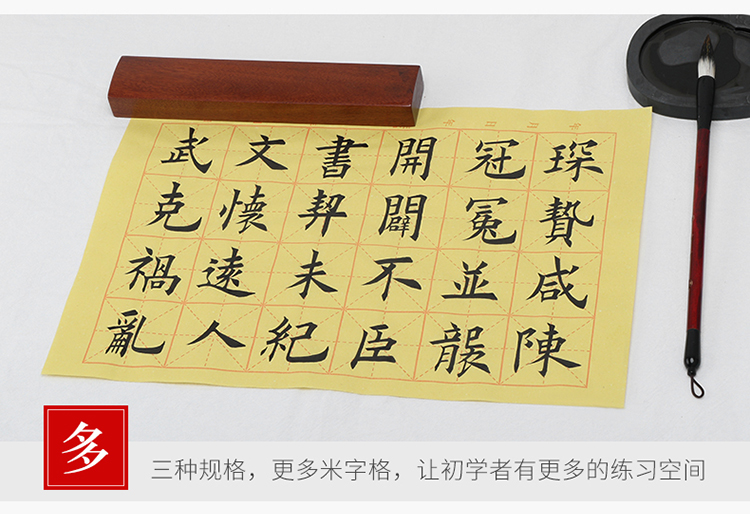 琛贄咸陳
冠冕並襲
開闢不臣
書契未紀
文懷遠人
武克禍亂
多
三种规格，更多米字格，让初学者有更多的练习空间